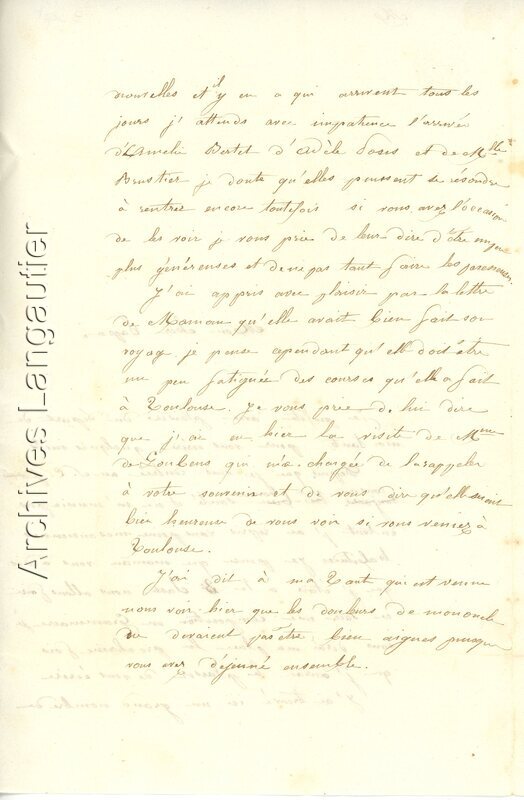 nouvelles et il y en a qui arrivent tous les
jours j'attends avec impatience l'arrivée
d'Amélie Bertet d'Adèle et de Mlle
Brustier je doute qu'elles puissent se résoudre
à rentrer encore toutefois si vous avez l'occasion
de les voir je vous prie de leur dire d'être un peu
plus généreuses et de ne pas tant faire les paresseuses.
J'ai appris avec plaisir par la lettre
de Maman qu'elle avait bien fait son
voyage je pense cependant qu'elle doit être
un peu fatiguée des courses qu'elle a fait
à Toulouse. Je vous prie de lui dire
que j'ai eu hier la visite de Mme
de Loubens qui m'a chargée de la rappeler
à votre souvenir et de vous dire qu'elle serait
bien heureuse de vous voir si vous veniez à
Toulouse.
J'ai dit à ma Tante qui est venue
nous voir hier que les douleurs de mon oncle
ne devaient pas être bien aigues puisque
vous avez déjeuné ensemble.
Archives Langautier